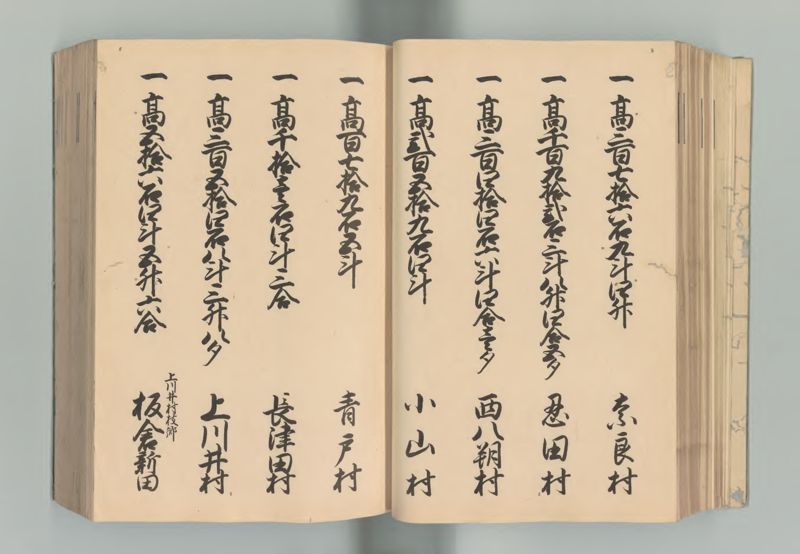 一 高三百七拾六石九斗四升 奈良村
一 高千百九拾弐石三斗八升四合五夕 恩田村
一 高三百四拾四石六斗四合壱夕 西八朔村
一 高弐百五拾九石四斗 小山村
一 高百七拾九石五斗 青戸村
一 高千拾壱石四斗三合 長津田村
一 高三百五拾四石八斗三升八夕 上川井村
一 高五拾六石四斗五升六合 上川井村枝郷 板倉新田